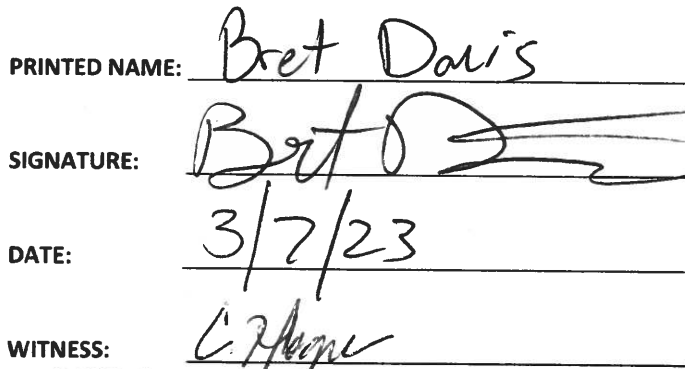 PRINTED NAME: Bret Davis
SIGNATURE: Bret D
DATE: 3/7/23
WITNESS: C.